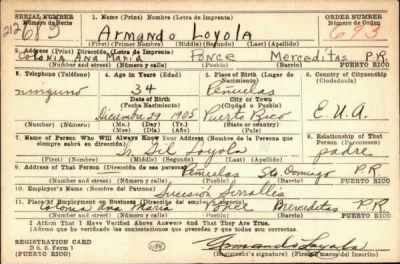 SERIAL NUMBER 1. Name (Print) Nombre (Letra de Imprenta) ORDER NUMBER
Número de Serie Número de Orden
Armando Loyola 693
(First) (Primer Nombre) (Middle) (Segundo) (Last) (Apellido)
2. Address (Print) Dirección (Letra de Imprenta)
Colonia Ana Maria Ponce Mercedítas P.R.
(Number and street) (Número y calle) (Town) (Pueblo) (Barrio) PUERTO RICO
3. Telephone (Teléfono) 4. Age in Years (Edad) 5. Place of Birth (Lugar de Nacimiento) 6. Country of Citizenship (Ciudadanía)
ninguno 34 Peñuelas
Date of Birth City or Town
(Fecha Nacimiento) (Ciudad o Pueblo)
Diciembre 29 1905 Puerto Rico E.U.A.
(Mo.) (Day) (Yr.) State or Country
(Number) (Número) (Mes) (Día) (Año) (Estado o País)
7. Name of Person Who Will Always Know Your Address (Nombre de la Persona que siempre sabrá su dirección) 8. Relationship of That Person (Parentesco)
Gil Loyola padre
(First) (Nombre) (Middle) (Segundo) (Last) (Apellido)
9. Address of That Person (Dirección de esa persona)
Peñuelas Sto Domingo P.R.
(Number and street) (Número y calle) (Town) (Pueblo) (Barrio) PUERTO RICO
10. Employer's Name (Nombre del Patrono)
Sucesión Serrallés
11. Place of Employment or Business (Dirección del empleo o negocio)
Colonia Ana Maria Ponce Merceditas P.R.
(Number and street) (Número y calle) (Town) (Pueblo) (Barrio) PUERTO RICO
I Affirm That I Have Verified Above Answers And That They Are True.
(Afirmo que he verificado las contestaciones que preceden y que son ciertas)
REGISTRATION CARD Armando Loyola
D. S. S. Form 1 (Registrant's signature) (Firma del Inscrito)